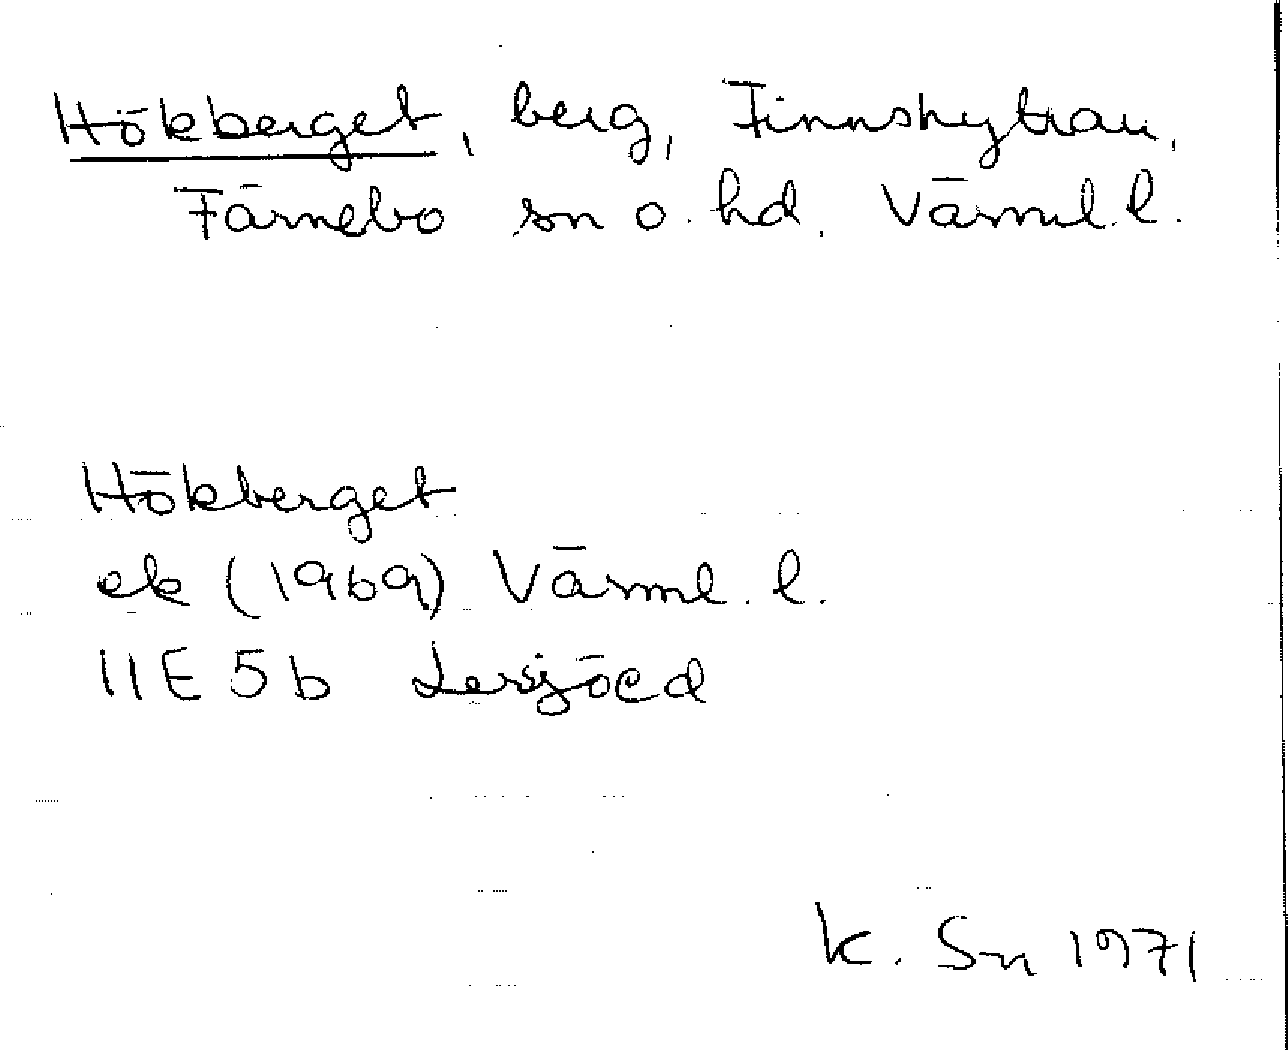 Hökberget, berg, Finnshyttan,
Färnebo sn o. hd. Värml. l.
Hökberget
ek (1969) Värml. l.
11E 5b Lersjöed
K. Sn 1971